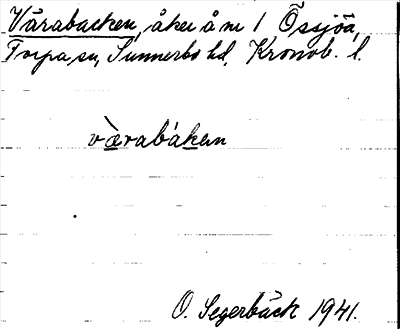 Vårabacken, åker å nr 1 Össjöa,
Torpa sn, Sunnerbo hd, Kronob. l.
værabàkan
O. Segerbäck 1941.